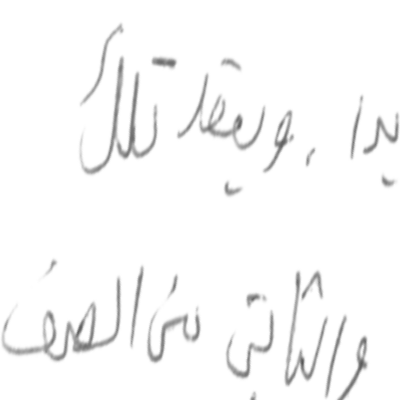 يدا ، ويعقد تلك
والثاني من الصرف